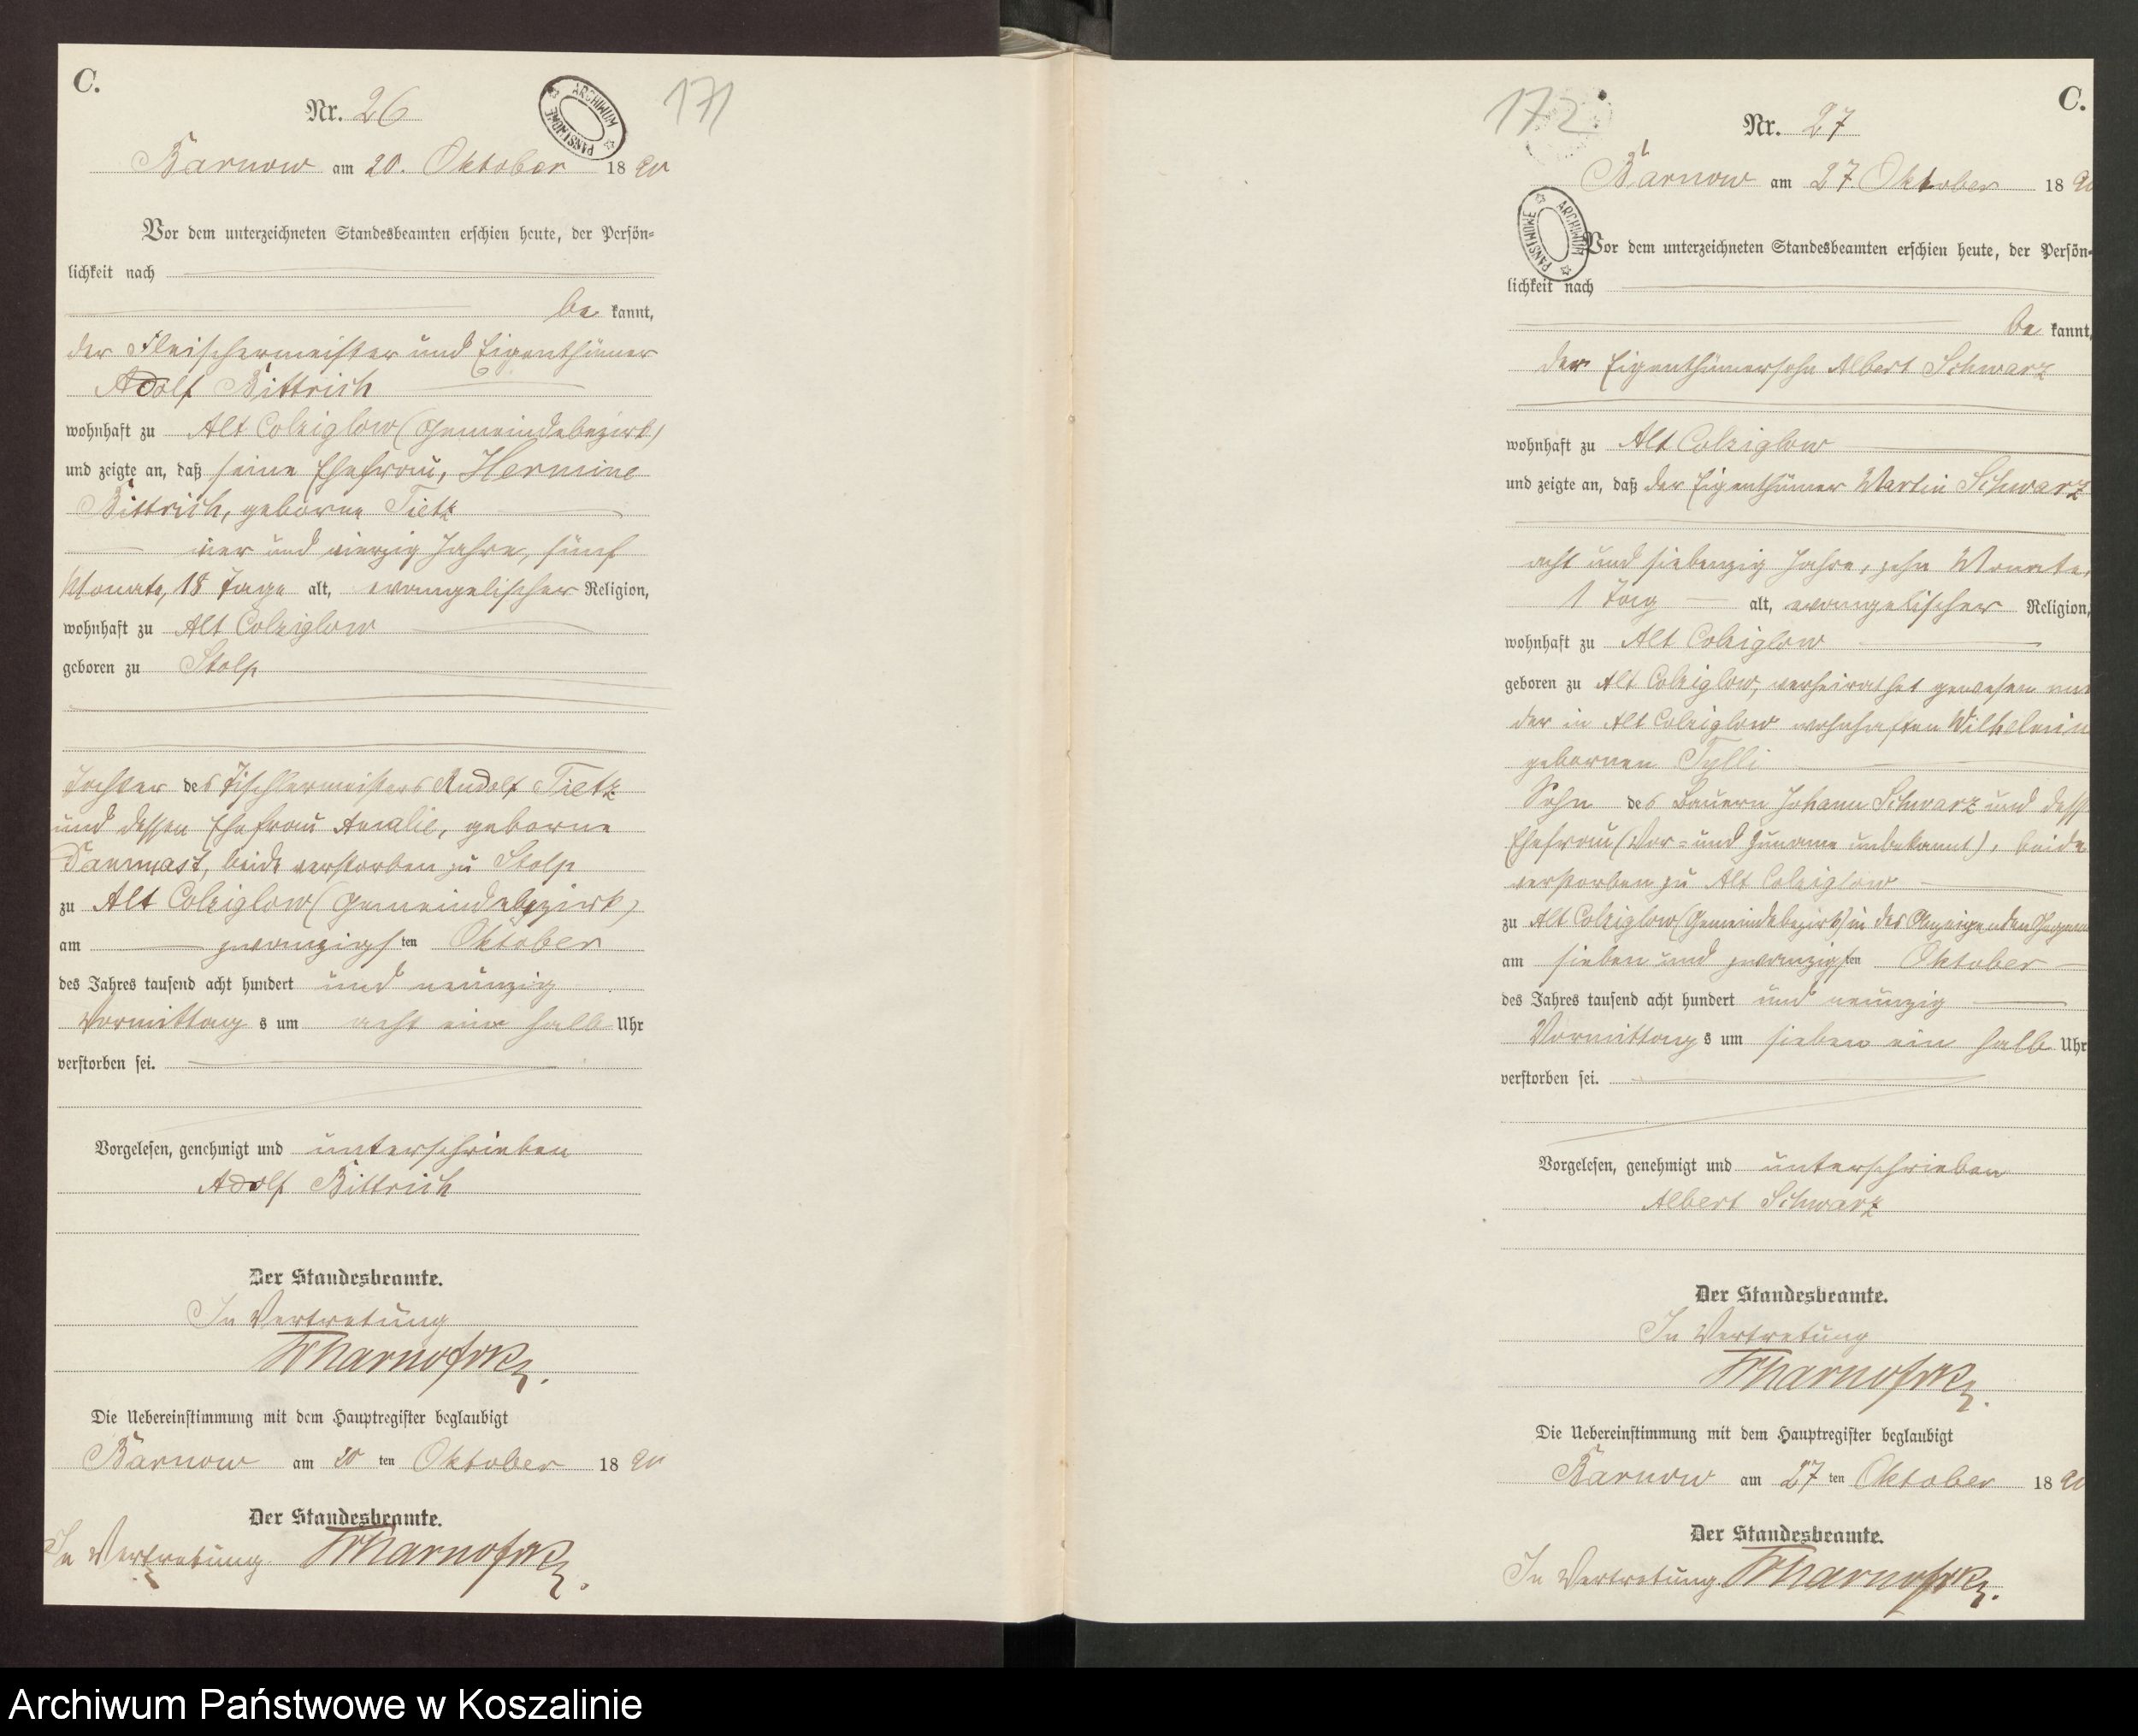 C.
Nr. 26
ARCHIWUM PAŃSTWOWE
171
Barnow am 20. Oktober 1890
Vor dem unterzeichneten Standesbeamten erschien heute, der Persön=
lichkeit nach
be kannt,
der Fleischermeister und Eigenthümer
Adolf Bittrich
wohnhaft zu Alt Colziglow (Gemeindebezirk)
und zeigte an, daß seine Ehefrau, Hermine
Bittrich, geborne Tietz
vier und vierzig Jahre, fünf
Monate, 18 Tage alt, evangelischer Religion,
wohnhaft zu Alt Colziglow
geboren zu Stolp
Tochter des Tischlermeisters Rudolf Tietz
und dessen Ehefrau Amalie, geborne
beide verstorben zu Stolp
zu Alt Colziglow (Gemeindebezirk)
am zwanzigsten Oktober
des Jahres tausend acht hundert und neunzig
Vormittag s um acht ein halb Uhr
verstorben sei.
Vorgelesen, genehmigt und unterschrieben
Adolf Bittrich
Der Standesbeamte.
In Vertretung
Die Uebereinstimmung mit dem Hauptregister beglaubigt
Barnow am 20 ten Oktober 1890
Der Standesbeamte.
In Vertretung
C.
172
Nr. 27
Barnow am 27 Oktober 1890
ARCHIWUM PAŃSTWOWE
Vor dem unterzeichneten Standesbeamten erschien heute, der Persön=
lichkeit nach
be kannt,
der Eigenthümersohn Albert Schwarz
wohnhaft zu Alt Colziglow
und zeigte an, daß der Eigenthümer Martin Schwarz
acht und siebenzig Jahre, zehn Monate,
1 Tag alt, evangelischer Religion,
wohnhaft zu Alt Colziglow
geboren zu Alt Colziglow, verheirathet gewesen mit
der in Alt Colziglow wohnhaften Wilhelmin
gebornen
Sohn des Bauern Johann Schwarz und dess
Ehefrau (Vor= und Zuname unbekannt), beide
verstorben zu Alt Colziglow
zu Alt Colziglow (Gemeindebezirk) in des Anzeigenden Gegenw
am sieben und zwanzigsten Oktober
des Jahres tausend acht hundert und neunzig
Vormittag s um sieben ein halb Uhr
verstorben sei.
Vorgelesen, genehmigt und unterschrieben
Albert Schwarz
Der Standesbeamte.
In Vertretung
Die Uebereinstimmung mit dem Hauptregister beglaubigt
Barnow am 27 ten Oktober 1890
Der Standesbeamte.
In Vertretung
Archiwum Państwowe w Koszalinie